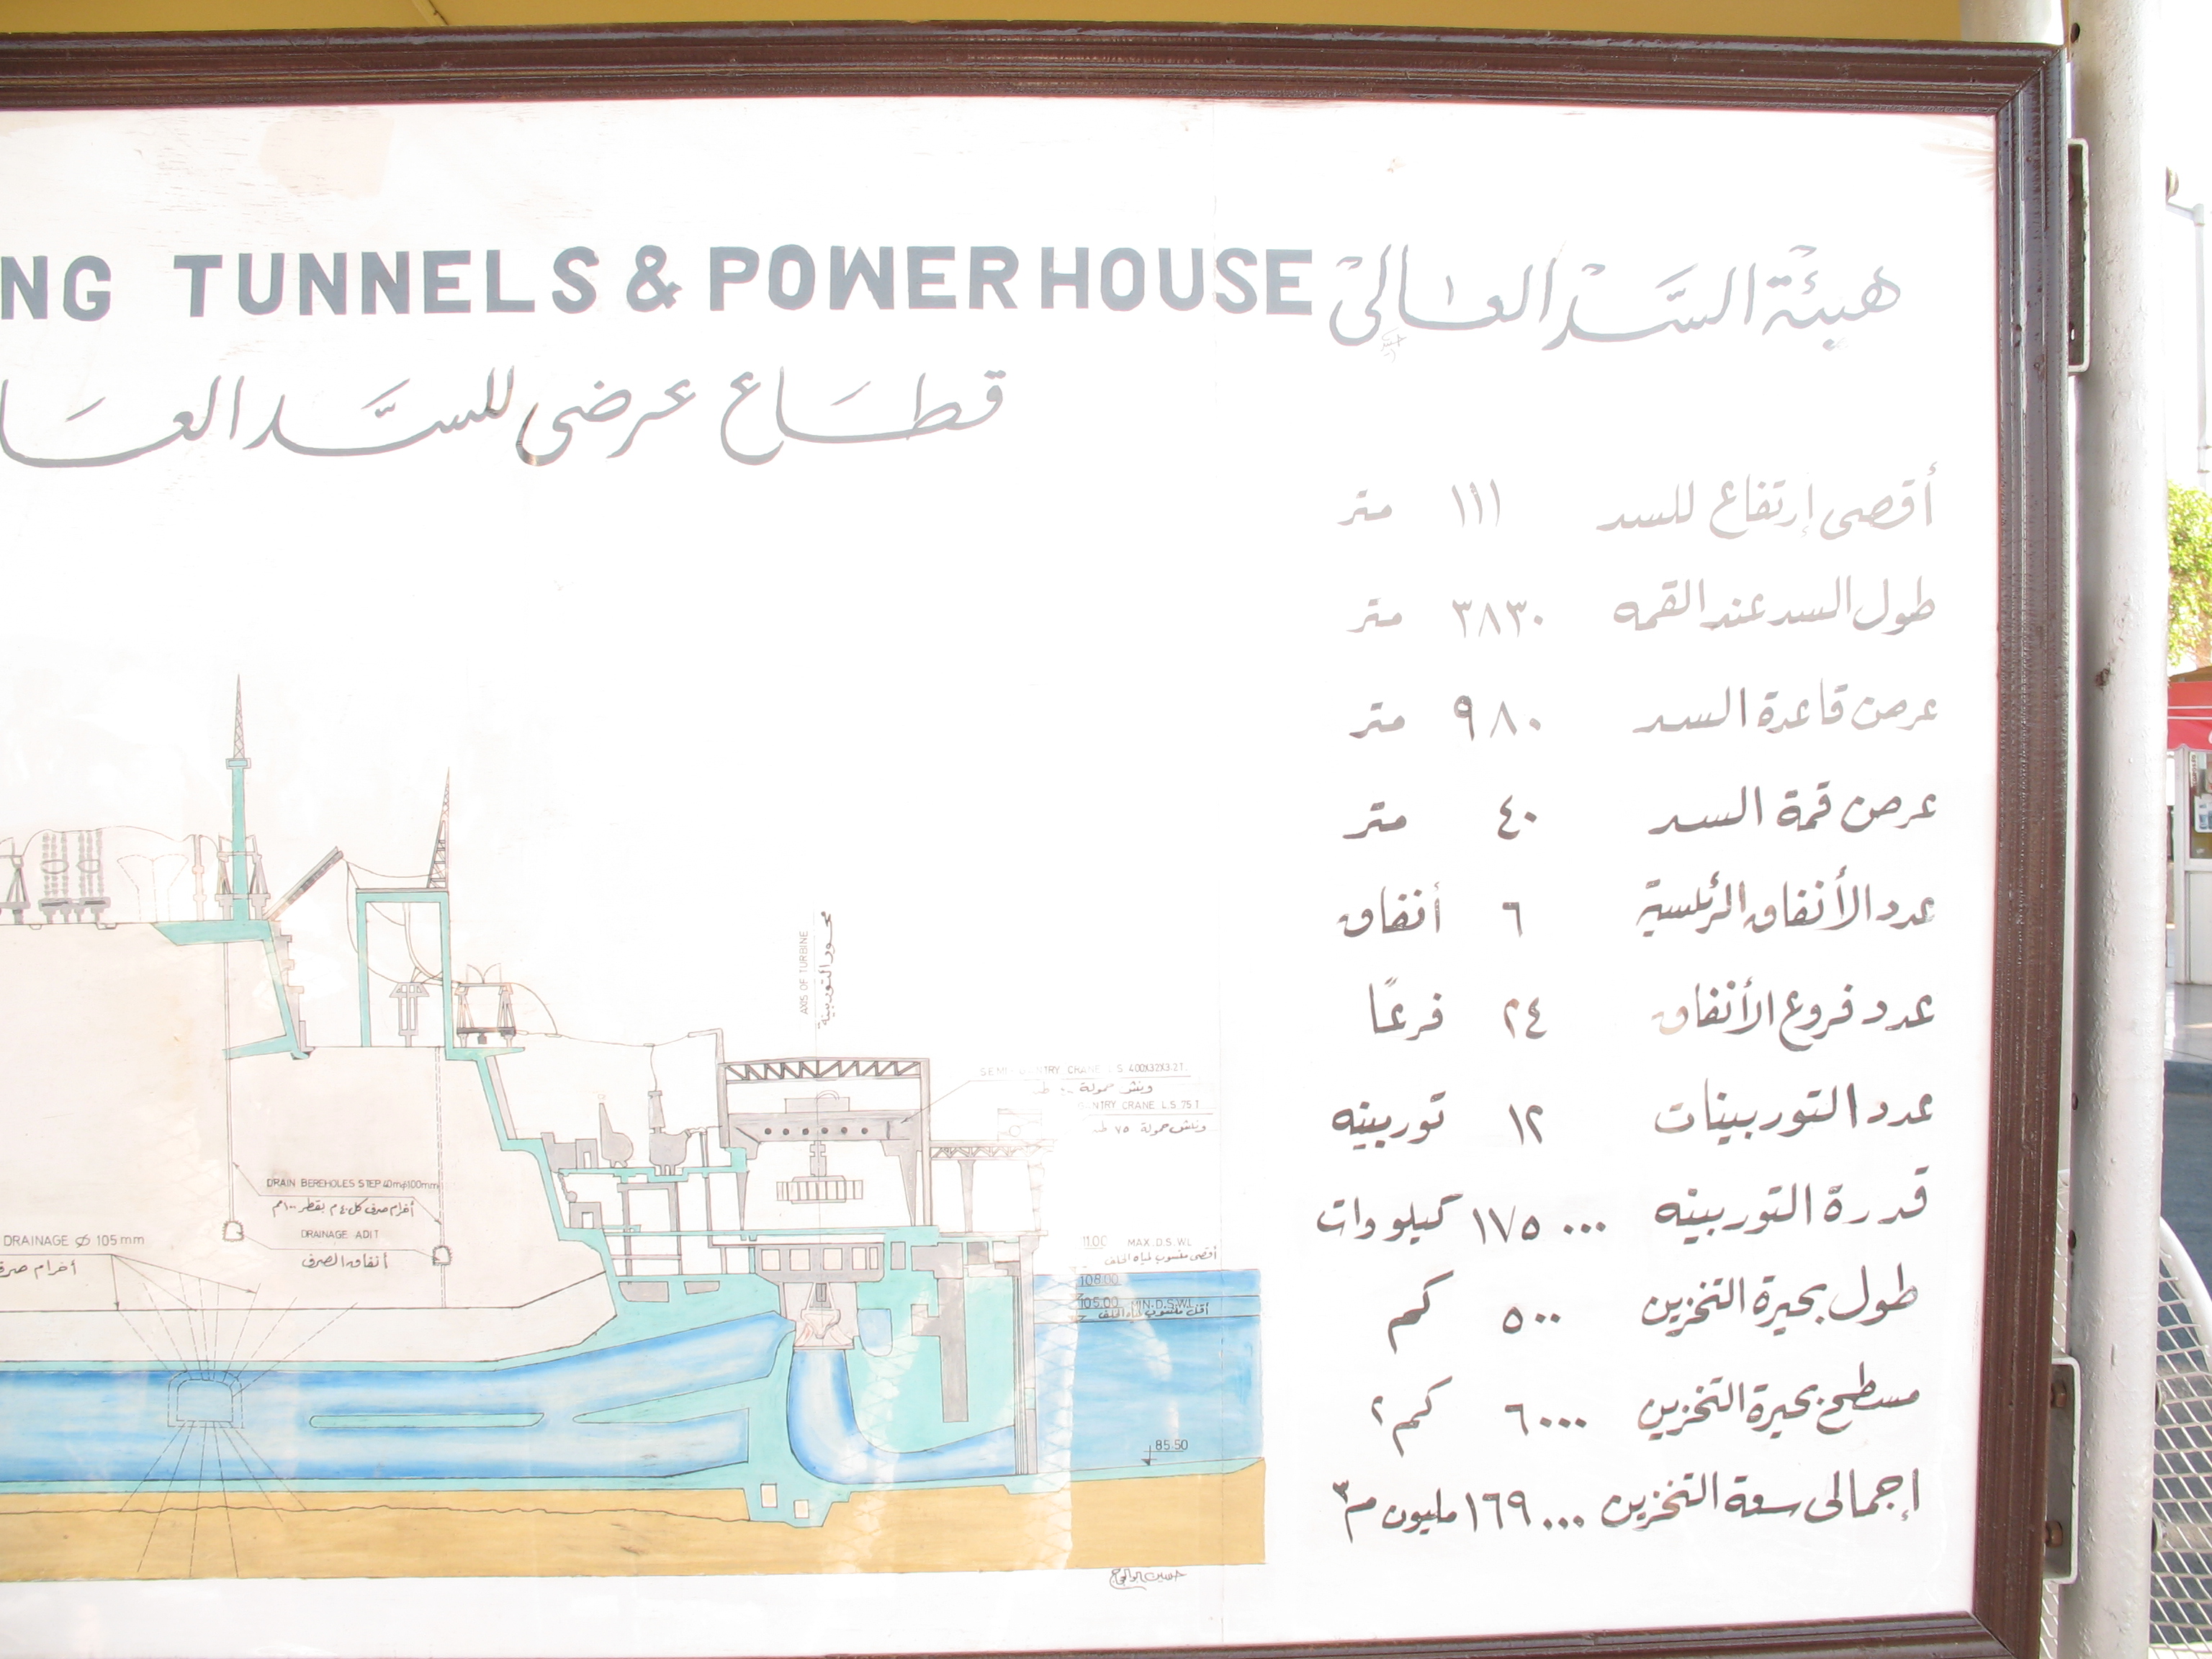 NG TUNNELS & POWER HOUSE
هيئة السَّد العالى
قطاع عرضى للسَّد العا
أقصى إرتفاع للسد ١١١ متر
طول السد عند القمه ٣٨٣٠ متر
عرض قاعدة السد ٩٨٠ متر
عرض قمة السد ٤٠ متر
عدد الأنفاق الرئسية ٦ أنفاق
عدد فروع الأنفاق ٢٤ فرعًا
عدد التوربينات ١٢ توربينه
قدرة التوربينه ١٧٥٠٠٠ كيلو وات
طول بحيرة التخزين ٥٠٠ كم
مسطح بحيرة التخزين ٦٠٠٠ كم٢
إجمالى سعة التخزين ١٦٩٠٠٠ مليون م٣
AXIS OF TURBINE
محور التوربينة
CRANE L.S. 400X32X3.2T.
ونش حمولة
NTRY CRANE L.S. 75 T
ونش حمولة ٧٥ طن
DRAIN BEREHOLES STEP 40m φ100mm
أخرام صرف كل ٤٠م بقطر ١٠٠مم
DRAINAGE ADIT
أنفاق الصرف
DRAINAGE Ø 105 mm
أخرام صرف
11.00 MAX. D.S. WL
أقصى منسوب لمياه الخلف
108.00
105.00 MIN. D.S.WL
أقل منسوب لمياه الخلف
85.50